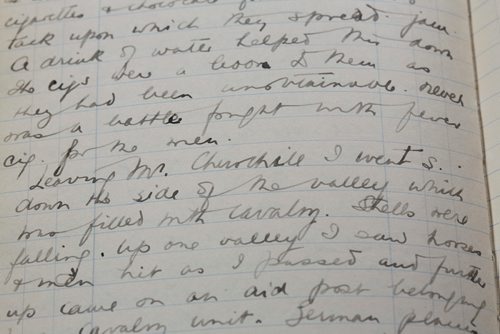 cigarettes & chocolate
tack upon which they spread jam.
A drink of water helped this down
The cigs were a boon to them as
they had been unobtainable. never
was a battle fought with fewer
cig. for the men.
Leaving Mr. Churchill I went S.
down the side of the valley which
was filled with cavalry. Shells were
falling. up one valley I saw horses
& men hit as I passed and further
up came on an aid post belonging
cavalry unit. German planes